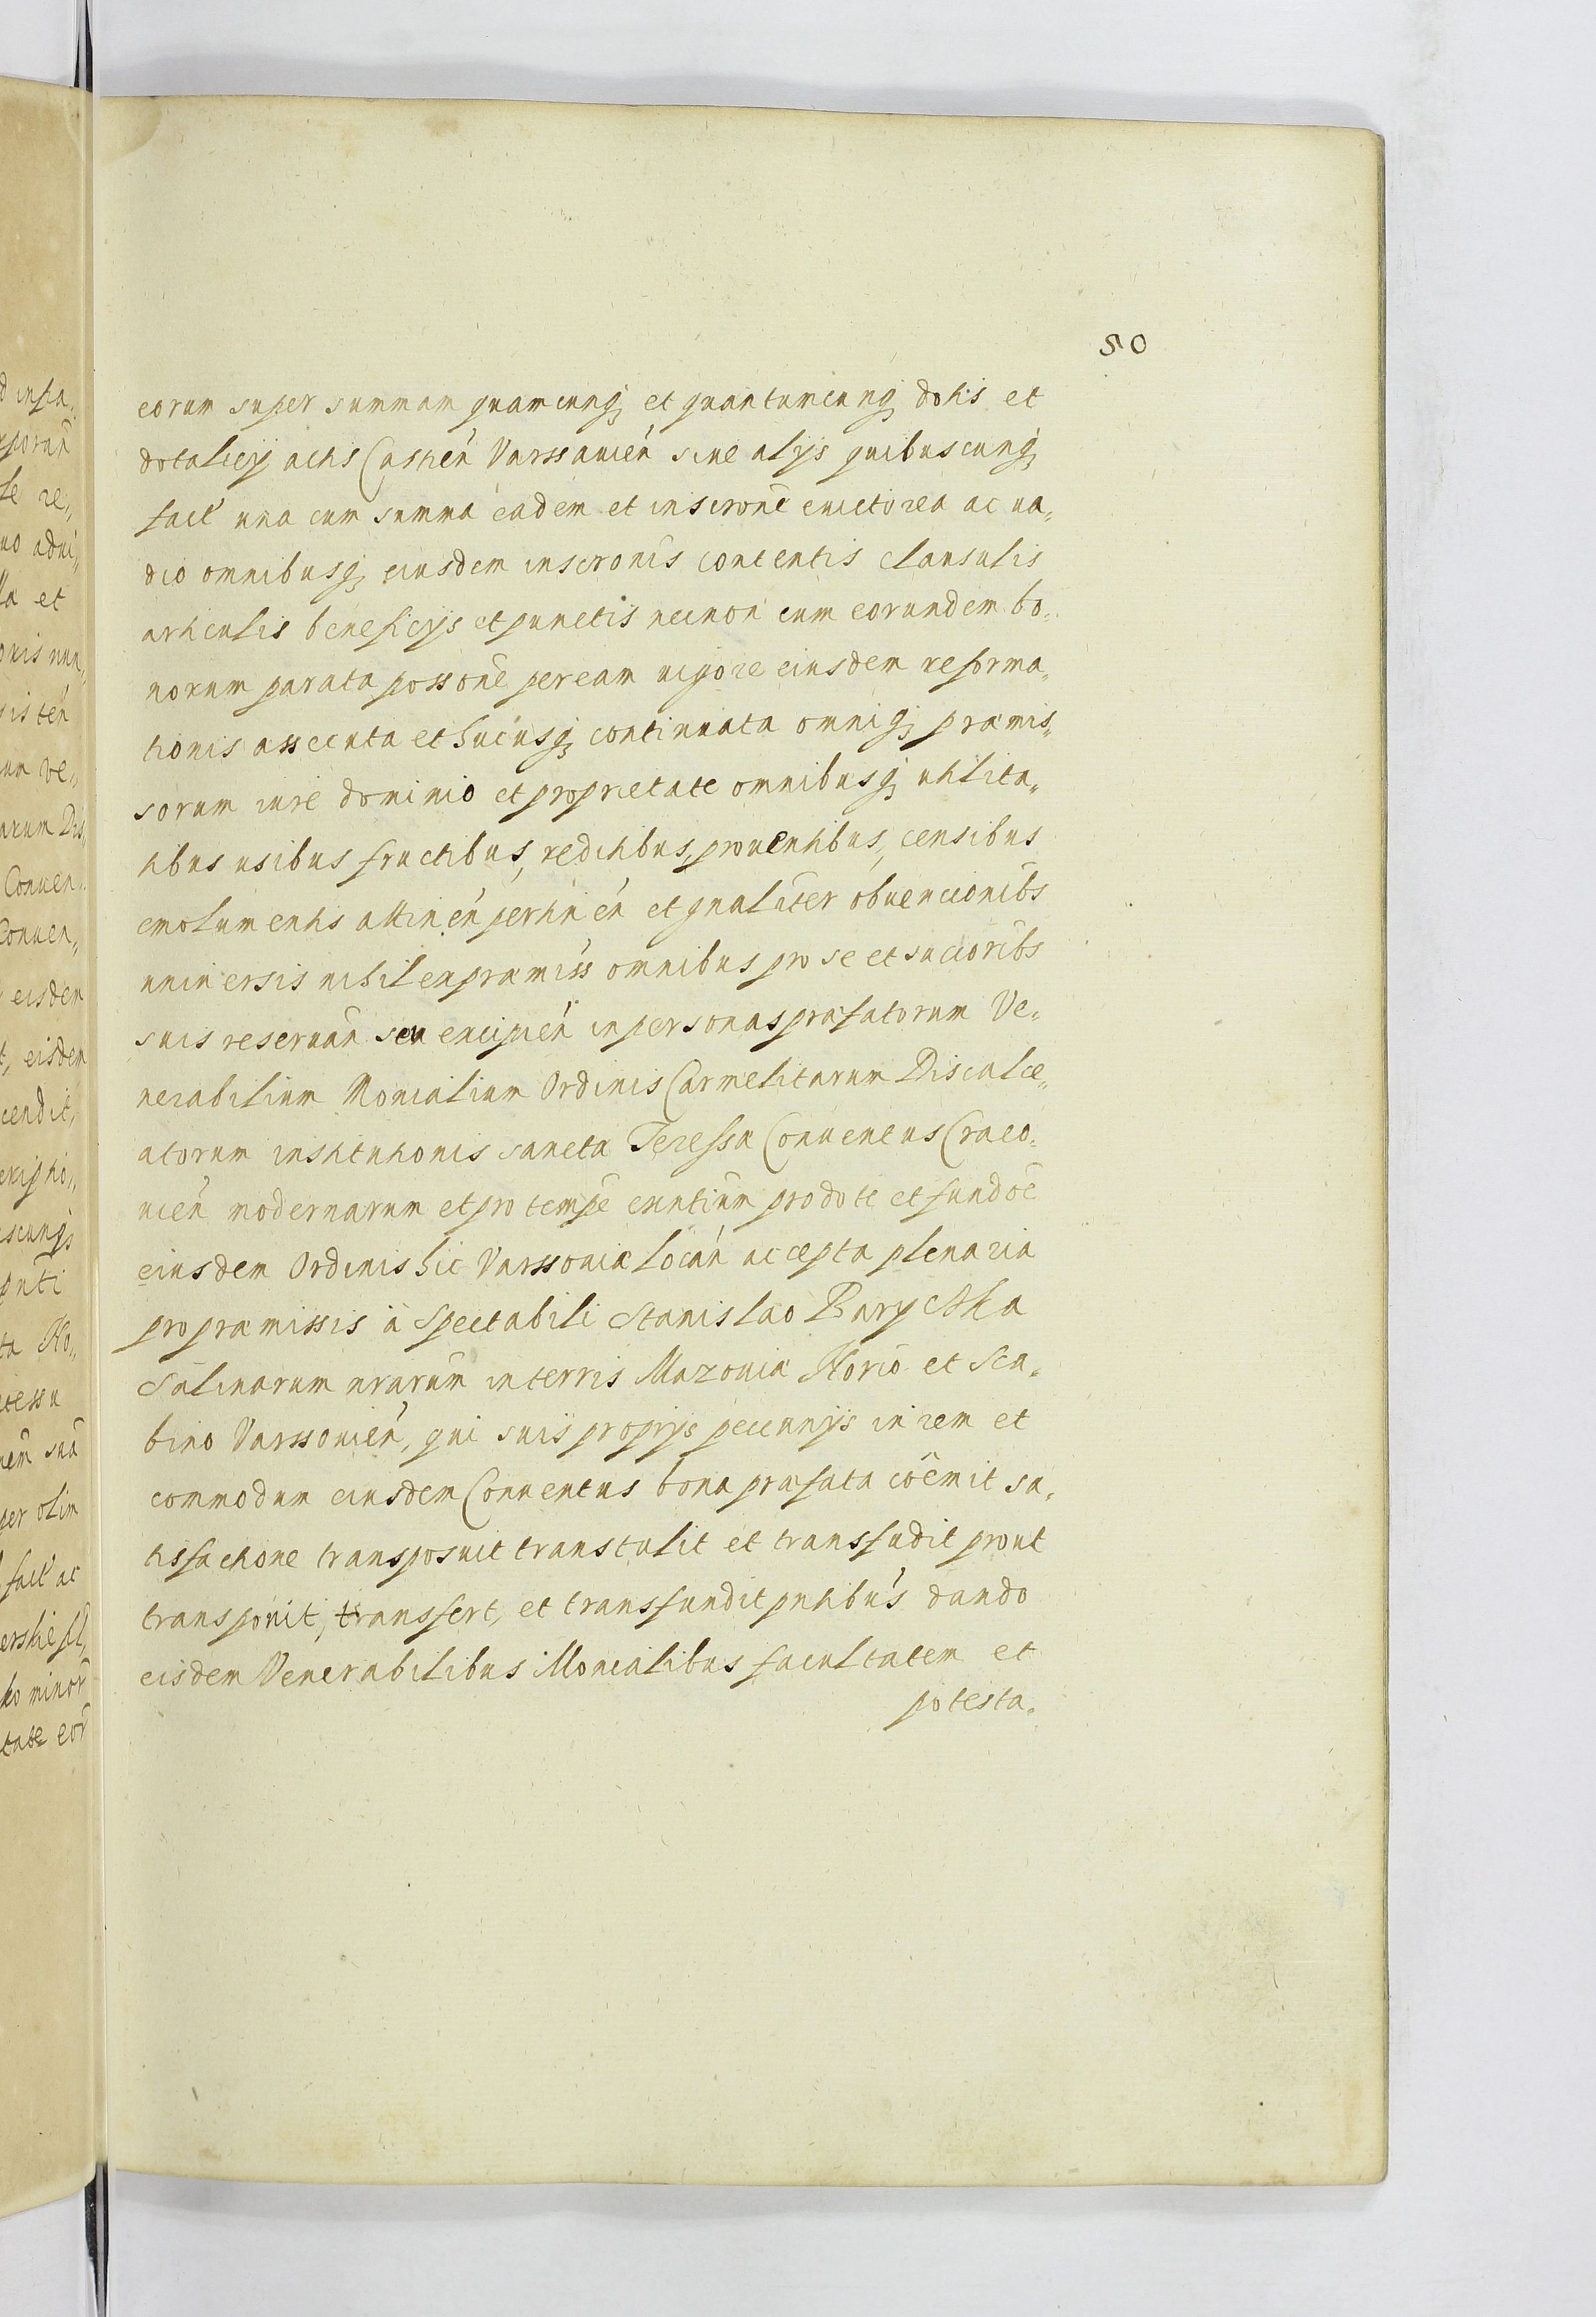 50
eorum super summam quamcunq₃ et quantumcunq₃ dotis et
dotalicij actis Castren̄ Varssauien̄ siue alijs quibuscunq₃
fact' una cum summa eadem et inscrone euictorea ac ua„
dio omnibusq₃ eiusdem inscronis contentis clausulis
articulis beneficijs et punctis necnon cum eorundem bo„
norum parata possone per eam uigore eiusdem reforma„
tionis assecuta et hucusq₃ continuata omniq₃ præmis„
sorum iure dominio et proprietate omnibusq₃ utilita„
tibus usibus fructibus, reditibus, prouentibus, censibus
emolumentis attinen̄ pertinen̄ et gnaliter obuencionibs
uniuersis nihil ex præmiss omnibus pro se et succoribs
suis reseruan̄ seu excipien̄ in personas præfatorum Ve„
nerabilium Monialium Ordinis Carmelitarum Discalce„
atorum institutionis sanctæ Teressæ Conuentus Craco„
uien̄ modernarum et pro tempe exntium pro dote et fundoe
eiusdem Ordinis hic Varssouiæ locan̄ accepta plenaria
pro præmissis à Spectabili Stanislao Barycska
Salinarum nrarum in terris Mazouiæ Notrio et Sca„
bino Varssouien̄, qui suis proprijs pecunijs in rem et
commodum eiusdem Conuentus bona præfata coëmit sa„
tisfactione transposuit transtulit et transfudit prout
transponit, transfert, et transfundit pntibus dando
eisdem Venerabilibus Monialibus facultatem et
potesta„